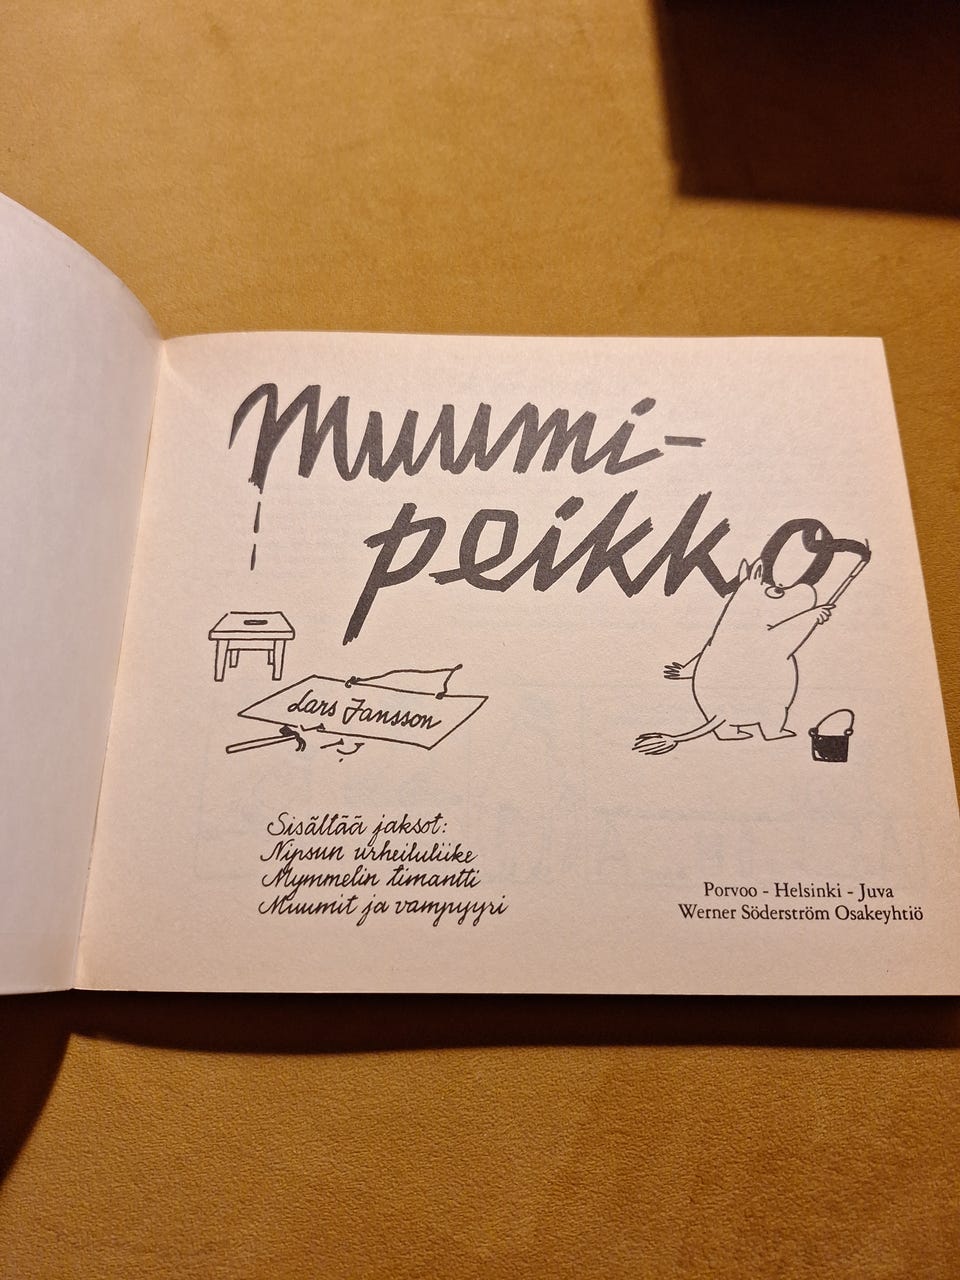 Muumi-
peikko
Lars Jansson
Sisältää jaksot:
Nipsun urheiluliike
Mymmelin timantti
Muumit ja vampyyri
Porvoo - Helsinki - Juva
Werner Söderström Osakeyhtiö